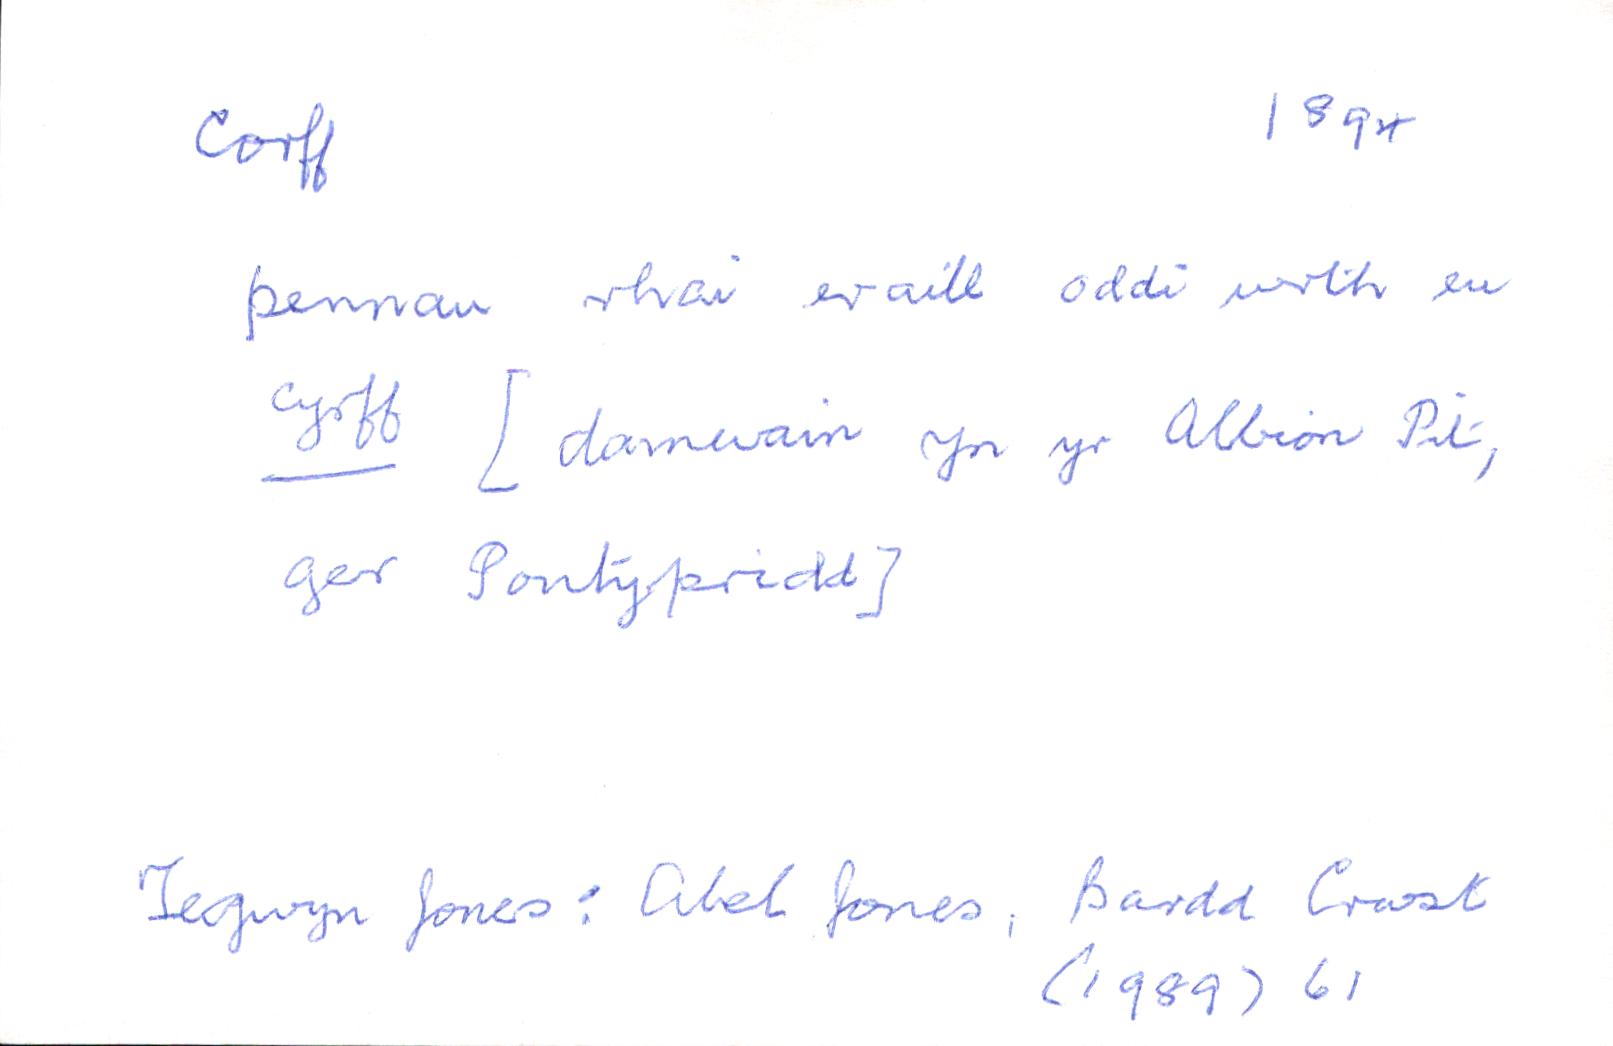 Corff 1894
pennau rhai eraill oddi wrth eu
cyrff [damwain yn yr Albion Pit,
ger Pontypridd]
Tegwyn Jones: Abel Jones, Bardd Crwst
(1989) 61